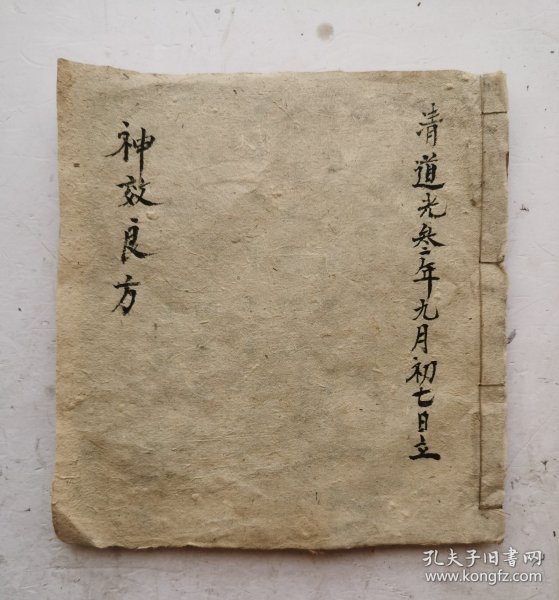 清道光叁年九月初七日立
神效良方
孔夫子旧书网
www.kongfz.com